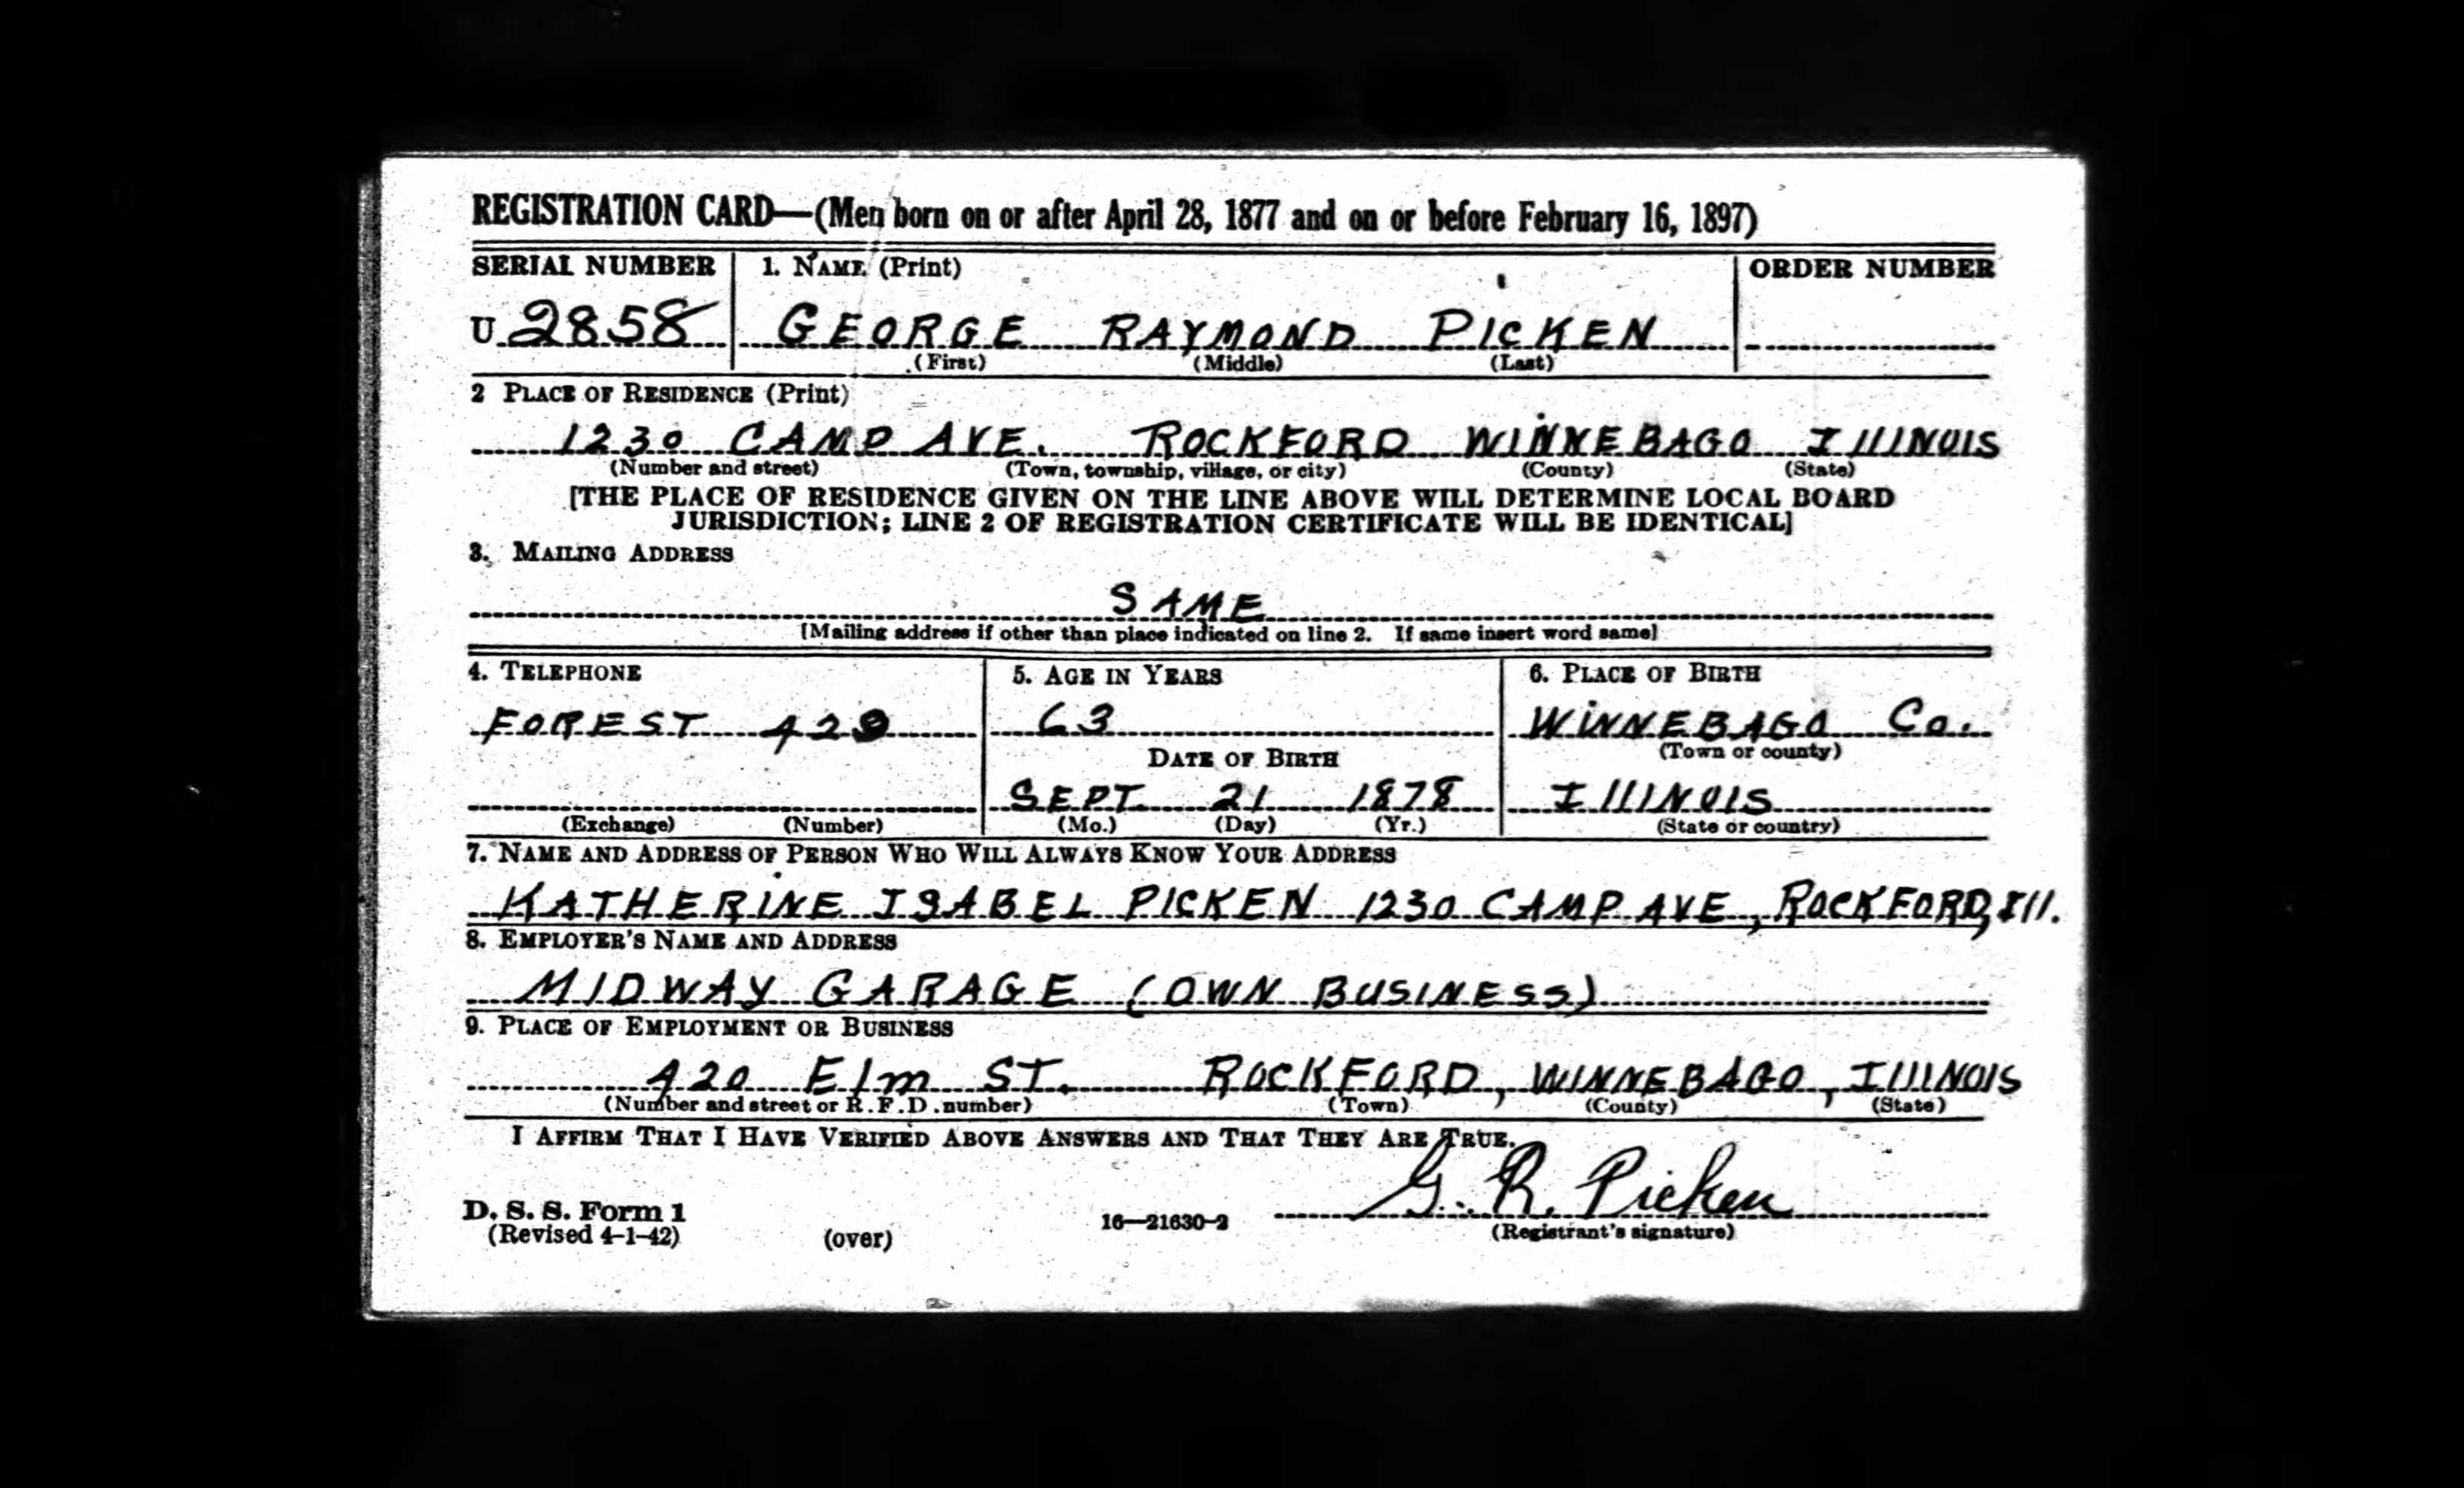 REGISTRATION CARD—(Men born on or after April 28, 1877 and on or before February 16, 1897)
SERIAL NUMBER 1. NAME (Print) ORDER NUMBER
U 2858 GEORGE RAYMOND PICKEN
(First) (Middle) (Last)
2 PLACE OF RESIDENCE (Print)
1230 CAMP AVE. ROCKFORD WINNEBAGO IllINOIS
(Number and street) (Town, township, village, or city) (County) (State)
[THE PLACE OF RESIDENCE GIVEN ON THE LINE ABOVE WILL DETERMINE LOCAL BOARD
JURISDICTION; LINE 2 OF REGISTRATION CERTIFICATE WILL BE IDENTICAL]
3. MAILING ADDRESS
SAME
[Mailing address if other than place indicated on line 2. If same insert word same]
4. TELEPHONE 5. AGE IN YEARS 6. PLACE OF BIRTH
FOREST 63 WINNEBAGO Co.
DATE OF BIRTH (Town or county)
SEPT 21 1878 IllINOIS
(Exchange) (Number) (Mo.) (Day) (Yr.) (State or country)
7. NAME AND ADDRESS OF PERSON WHO WILL ALWAYS KNOW YOUR ADDRESS
KATHERINE ISABEL PICKEN 1230 CAMP AVE, ROCKFORD, Ill.
8. EMPLOYER'S NAME AND ADDRESS
MIDWAY GARAGE (OWN BUSINESS)
9. PLACE OF EMPLOYMENT OR BUSINESS
420 Elm ST. ROCKFORD, WINNEBAGO, IllINOIS
(Number and street or R.F.D. number) (Town) (County) (State)
I AFFIRM THAT I HAVE VERIFIED ABOVE ANSWERS AND THAT THEY ARE TRUE.
G. R. Picken
D. S. S. Form 1
(Revised 4-1-42) (over) 16—21630-2 (Registrant's signature)